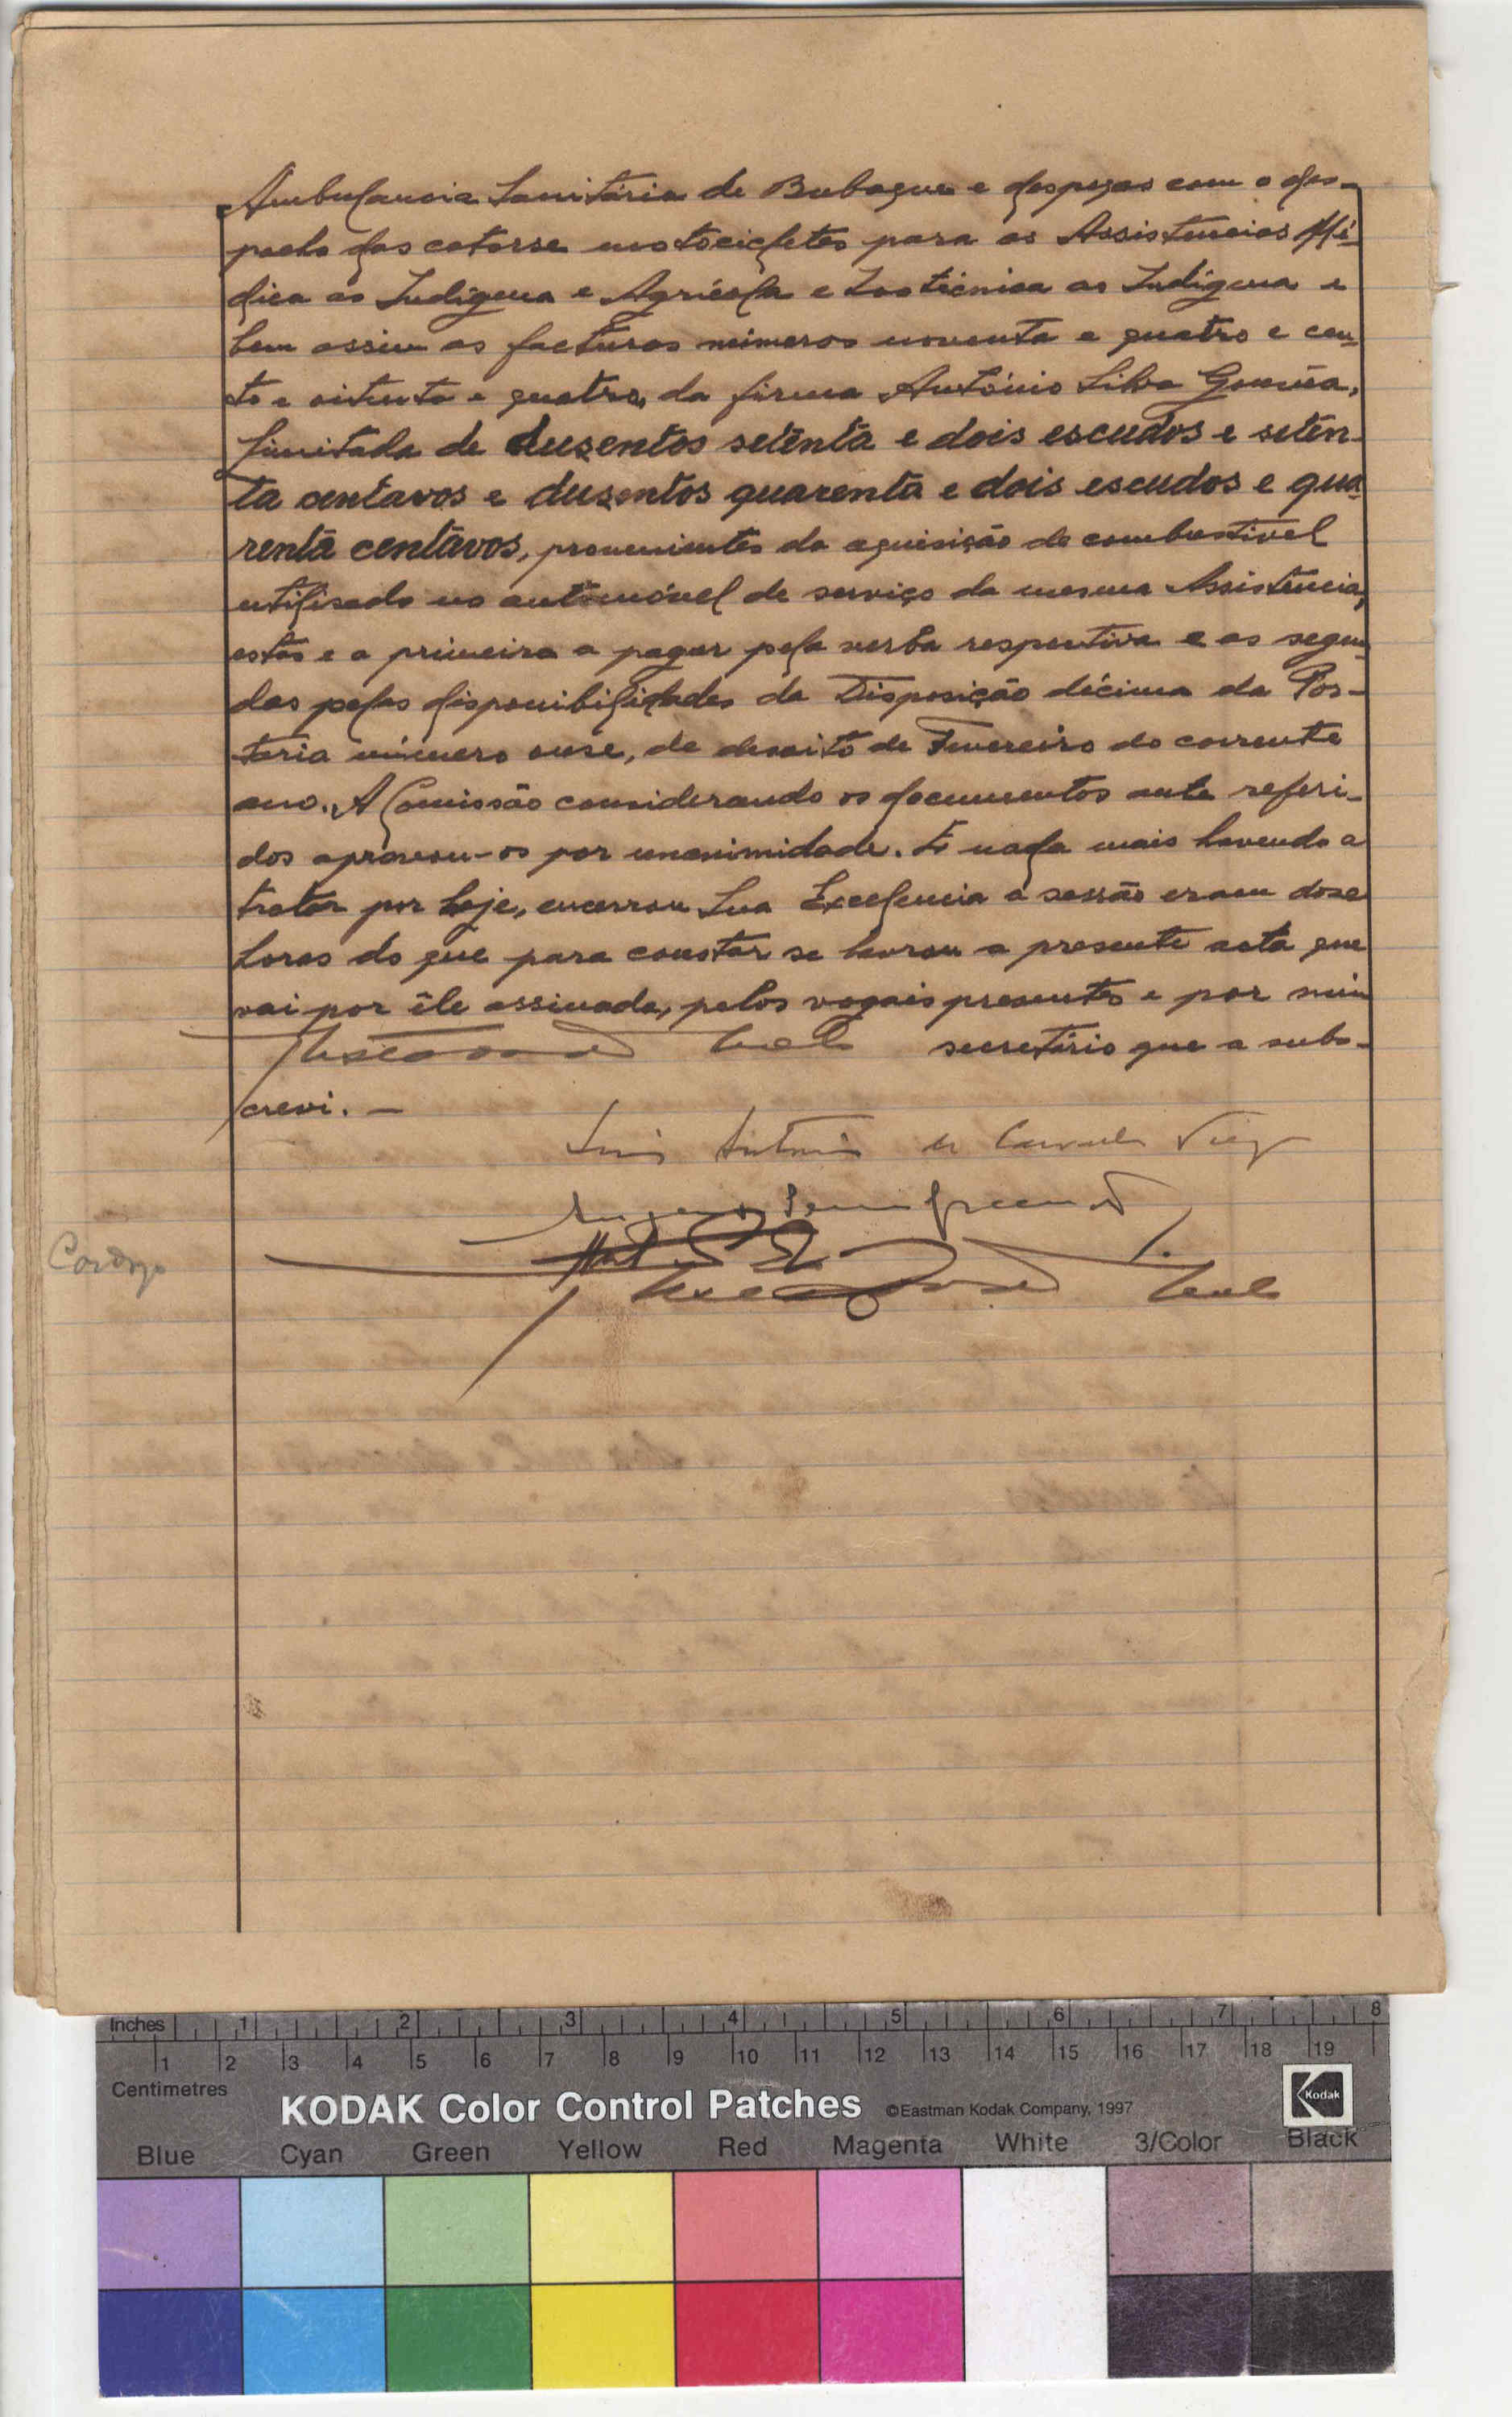 Ambulancia Sanitária de Bubaque e despezas com o des-
pacho das catorse motocicletes para as Assistencias Mé-
dica ao Indigena e Agricola e Zootécnica ao Indigena e
bem assim as facturas numeros noventa e quatro e cen-
to e oitenta e quatro, da firma António Silva Gouvêa,
Limitada de dusentos setenta e dois escudos e seten-
ta centavos e dusentos quarenta e dois escudos e qua-
renta centavos, provenientes da aquisição de combustivel
utilisado no automóvel de serviço da mesma Assistencia,
estas e a primeira a pagar pela verba respectiva e as segun-
das pelas disponibilidades da Disposição décima da Por-
taria número onse, de desoito de Fevereiro do corrente
ano. A Comissão considerando os documentos ante referi-
dos aprovou-os por unanimidade. E nada mais havendo a
tratar por hoje, encerrou Sua Excelencia a sessão eram doze
horas do que para constar se lavrou a presente acta que
vai por êle assinada, pelos vogais presentes e por mim
secretário que a subs-
crevi. —
Luis António de Carvalho Viegas
Inches 1 2 3 4 5 6 7 8
1 2 3 4 5 6 7 8 9 10 11 12 13 14 15 16 17 18 19
Centimetres
KODAK Color Control Patches ©Eastman Kodak Company, 1997 Kodak
Blue Cyan Green Yellow Red Magenta White 3/Color Black